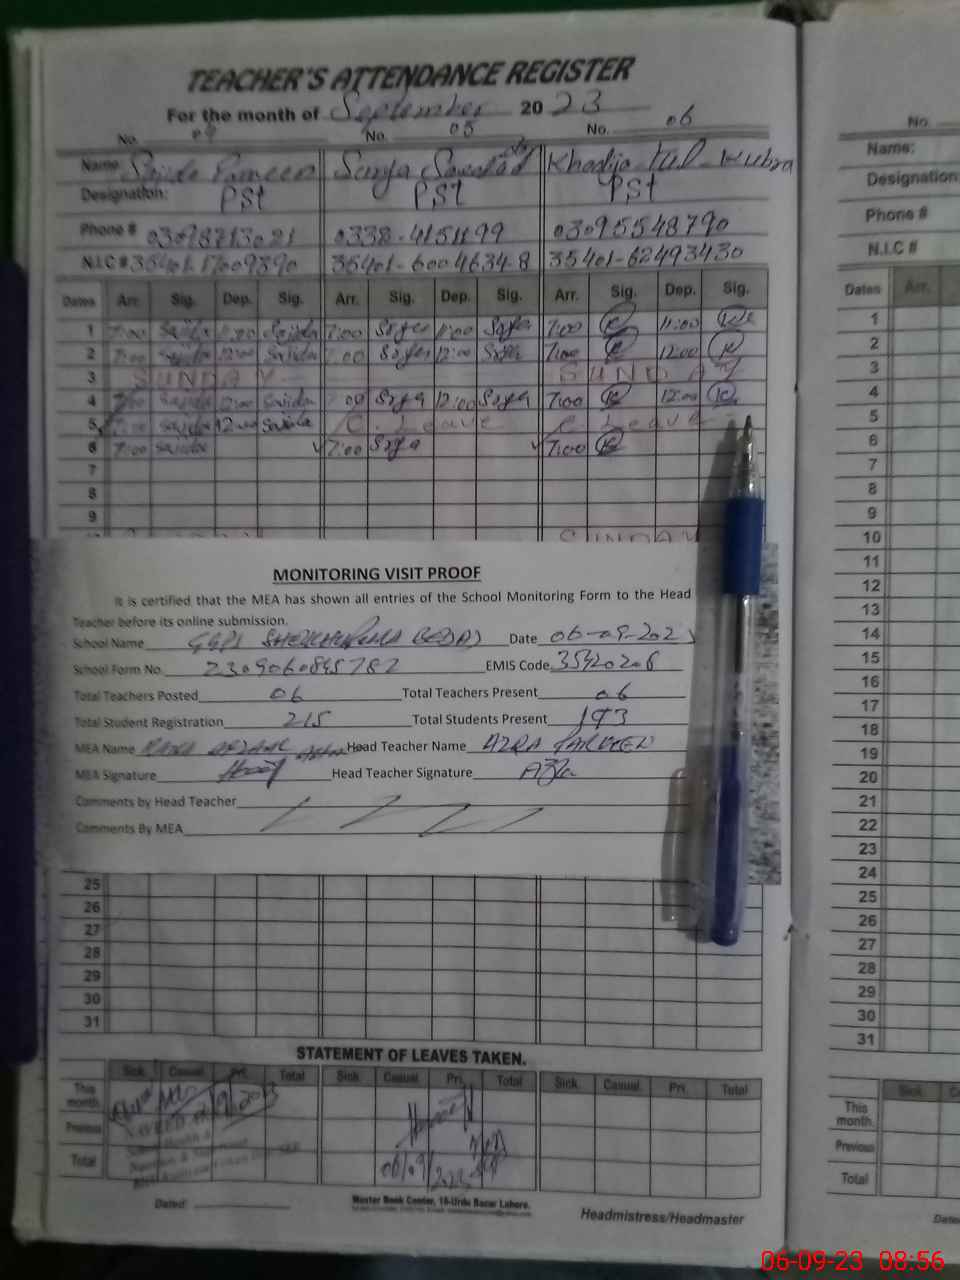 TEACHER'S ATTENDANCE REGISTER
For the month of September 2023
No. 04 No. 05 No. 06
Name: Name Khadija tul Kubra
Designation: PSt PSt PSt
Phone # 0338-4151199 03095548790
N.I.C # 35401-6004634-8 35401-62493430
Dates Arr. Sig. Dep. Sig. Arr. Sig. Dep. Sig. Arr. Sig. Dep. Sig.
1 7:00 Sajida 11:00 Sajida 7:00 11:00 7:00 11:00
2 7:00 Sajida 12:00 Sajida 7:00 12:00 7:00 12:00
3 SUNDAY SUNDAY
4 7:00 Sajida 12:00 Sajida 7:00 12:00 7:00 12:00
5 7:00 Sajida 12:00 Sajida C. Leave C. Leave
6 7:00 Sajida 7:00 7:00
7
8
9
SUNDAY
MONITORING VISIT PROOF
It is certified that the MEA has shown all entries of the School Monitoring Form to the Head
Teacher before its online submission.
School Name GGPS Date 06-09-202
School Form No. 230906084578 EMIS Code 35420206
Total Teachers Posted 06 Total Teachers Present 06
Total Student Registration 215 Total Students Present 193
MEA Name Head Teacher Name AZRA PARVEEN
MEA Signature Head Teacher Signature Azra
Comments by Head Teacher
Comments By MEA
25
26
27
28
29
30
31
STATEMENT OF LEAVES TAKEN.
Sick. Casual. Pri. Total Sick. Casual. Pri. Total Sick. Casual. Pri. Total
This month.
Previous
Total
06/09/2023
Dated:
Master Book Center, 18-Urdu Bazar Lahore.
Headmistress/Headmaster
No.
Name:
Designation:
Phone #
N.I.C #
Dates Arr.
1
2
3
4
5
6
7
8
9
10
11
12
13
14
15
16
17
18
19
20
21
22
23
24
25
26
27
28
29
30
31
Sick.
This month.
Previous
Total
06-09-23 08:56